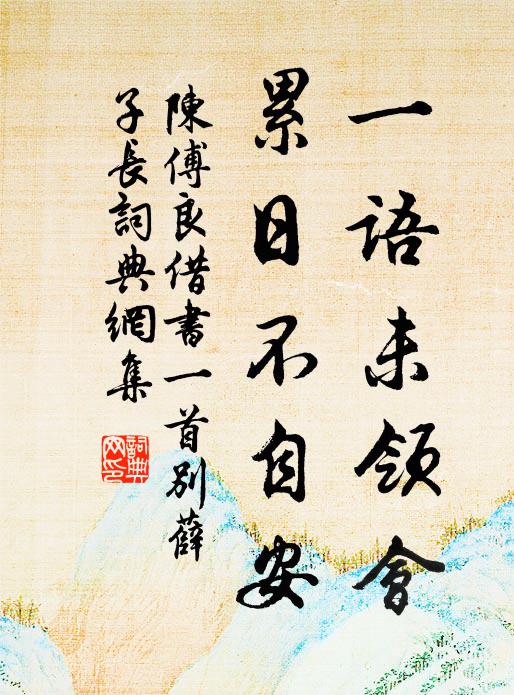 一語未領會
累日不自安
陳傅良借書一首別薛
子長詞典網集
詞典
网印